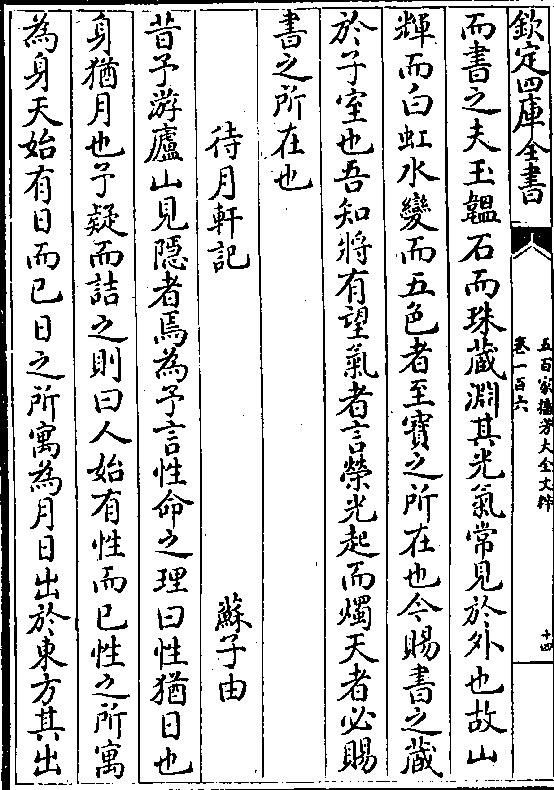 欽定四庫全書
五百家播芳大全文粹
卷一百六
十四
而書之夫玉韞石而珠藏淵其光氣常見於外也故山
輝而白虹水變而五色者至寶之所在也今賜書之藏
於子室也吾知將有望氣者言榮光起而燭天者必賜
書之所在也
待月軒記 蘇子由
昔予游廬山見隱者焉為予言性命之理曰性猶日也
身猶月也予疑而詰之則曰人始有性而已性之所寓
為身天始有日而已日之所寓為月日出於東方其出